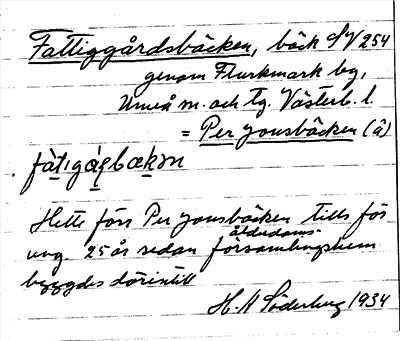 Fattiggårdsbäcken, bäck SV 254
genom Flurkmark by,
Umeå sn. och tg. Västerb. l.
= Per Jonsbäcken (â)
fàt̲ıgáɽbæk̲ən
Hette förr Per Jonsbäcken tills för
ung. 25 år sedan ålderdoms-
församlingshem
byggdes därintill
H. A Söderberg 1934